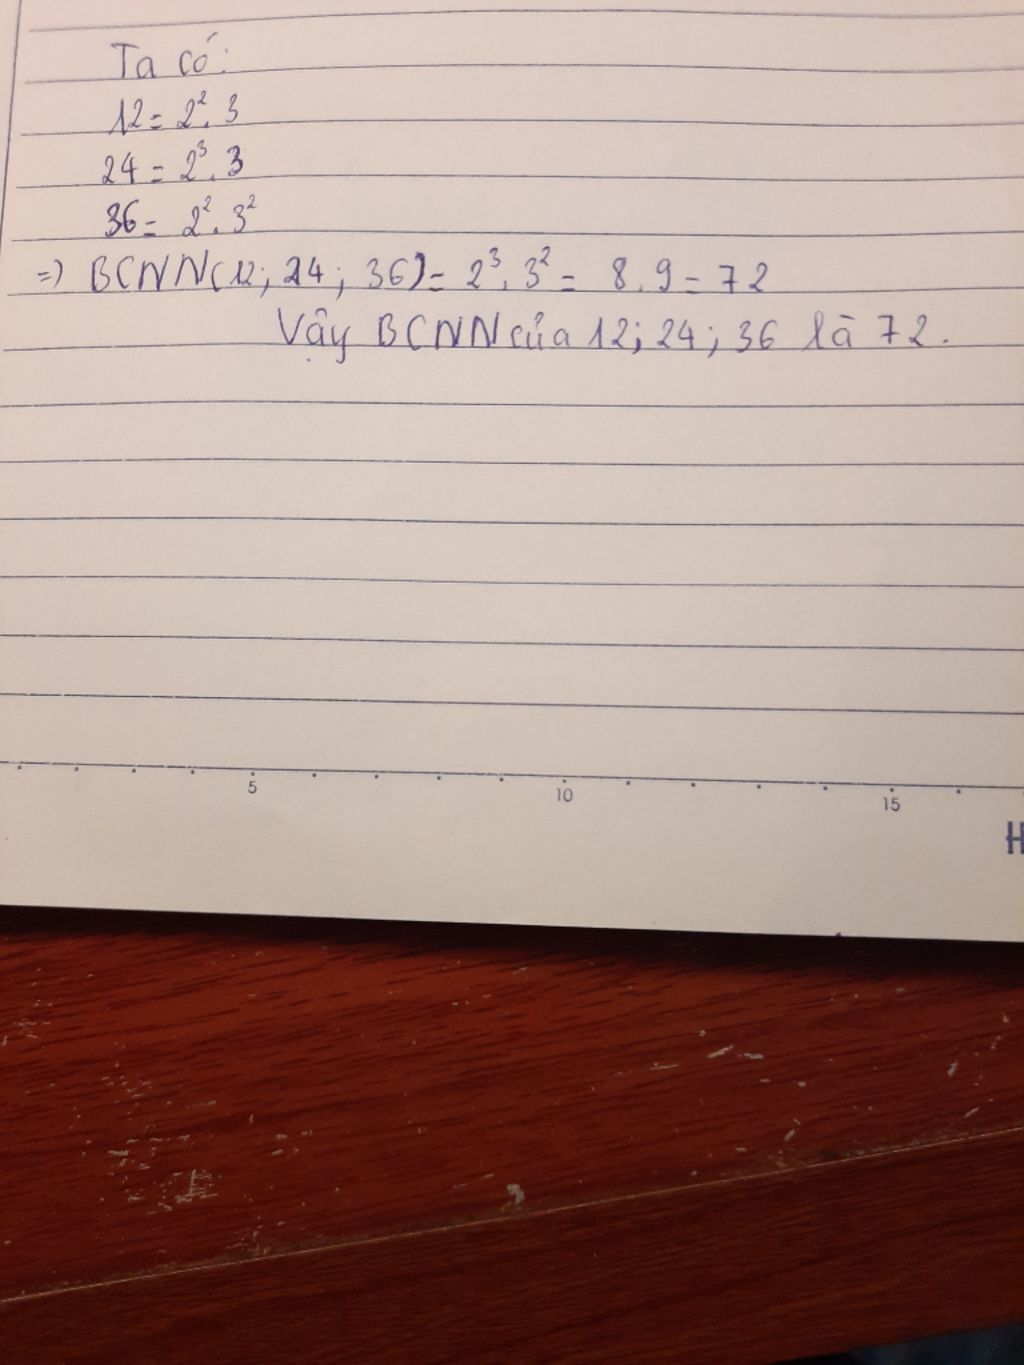 Ta có:
12 = 2². 3
24 = 2³. 3
36 = 2². 3²
=) BCNN(12; 24; 36) = 2³. 3² = 8. 9 = 72
Vậy BCNN của 12; 24; 36 là 72.
5 10 15
H